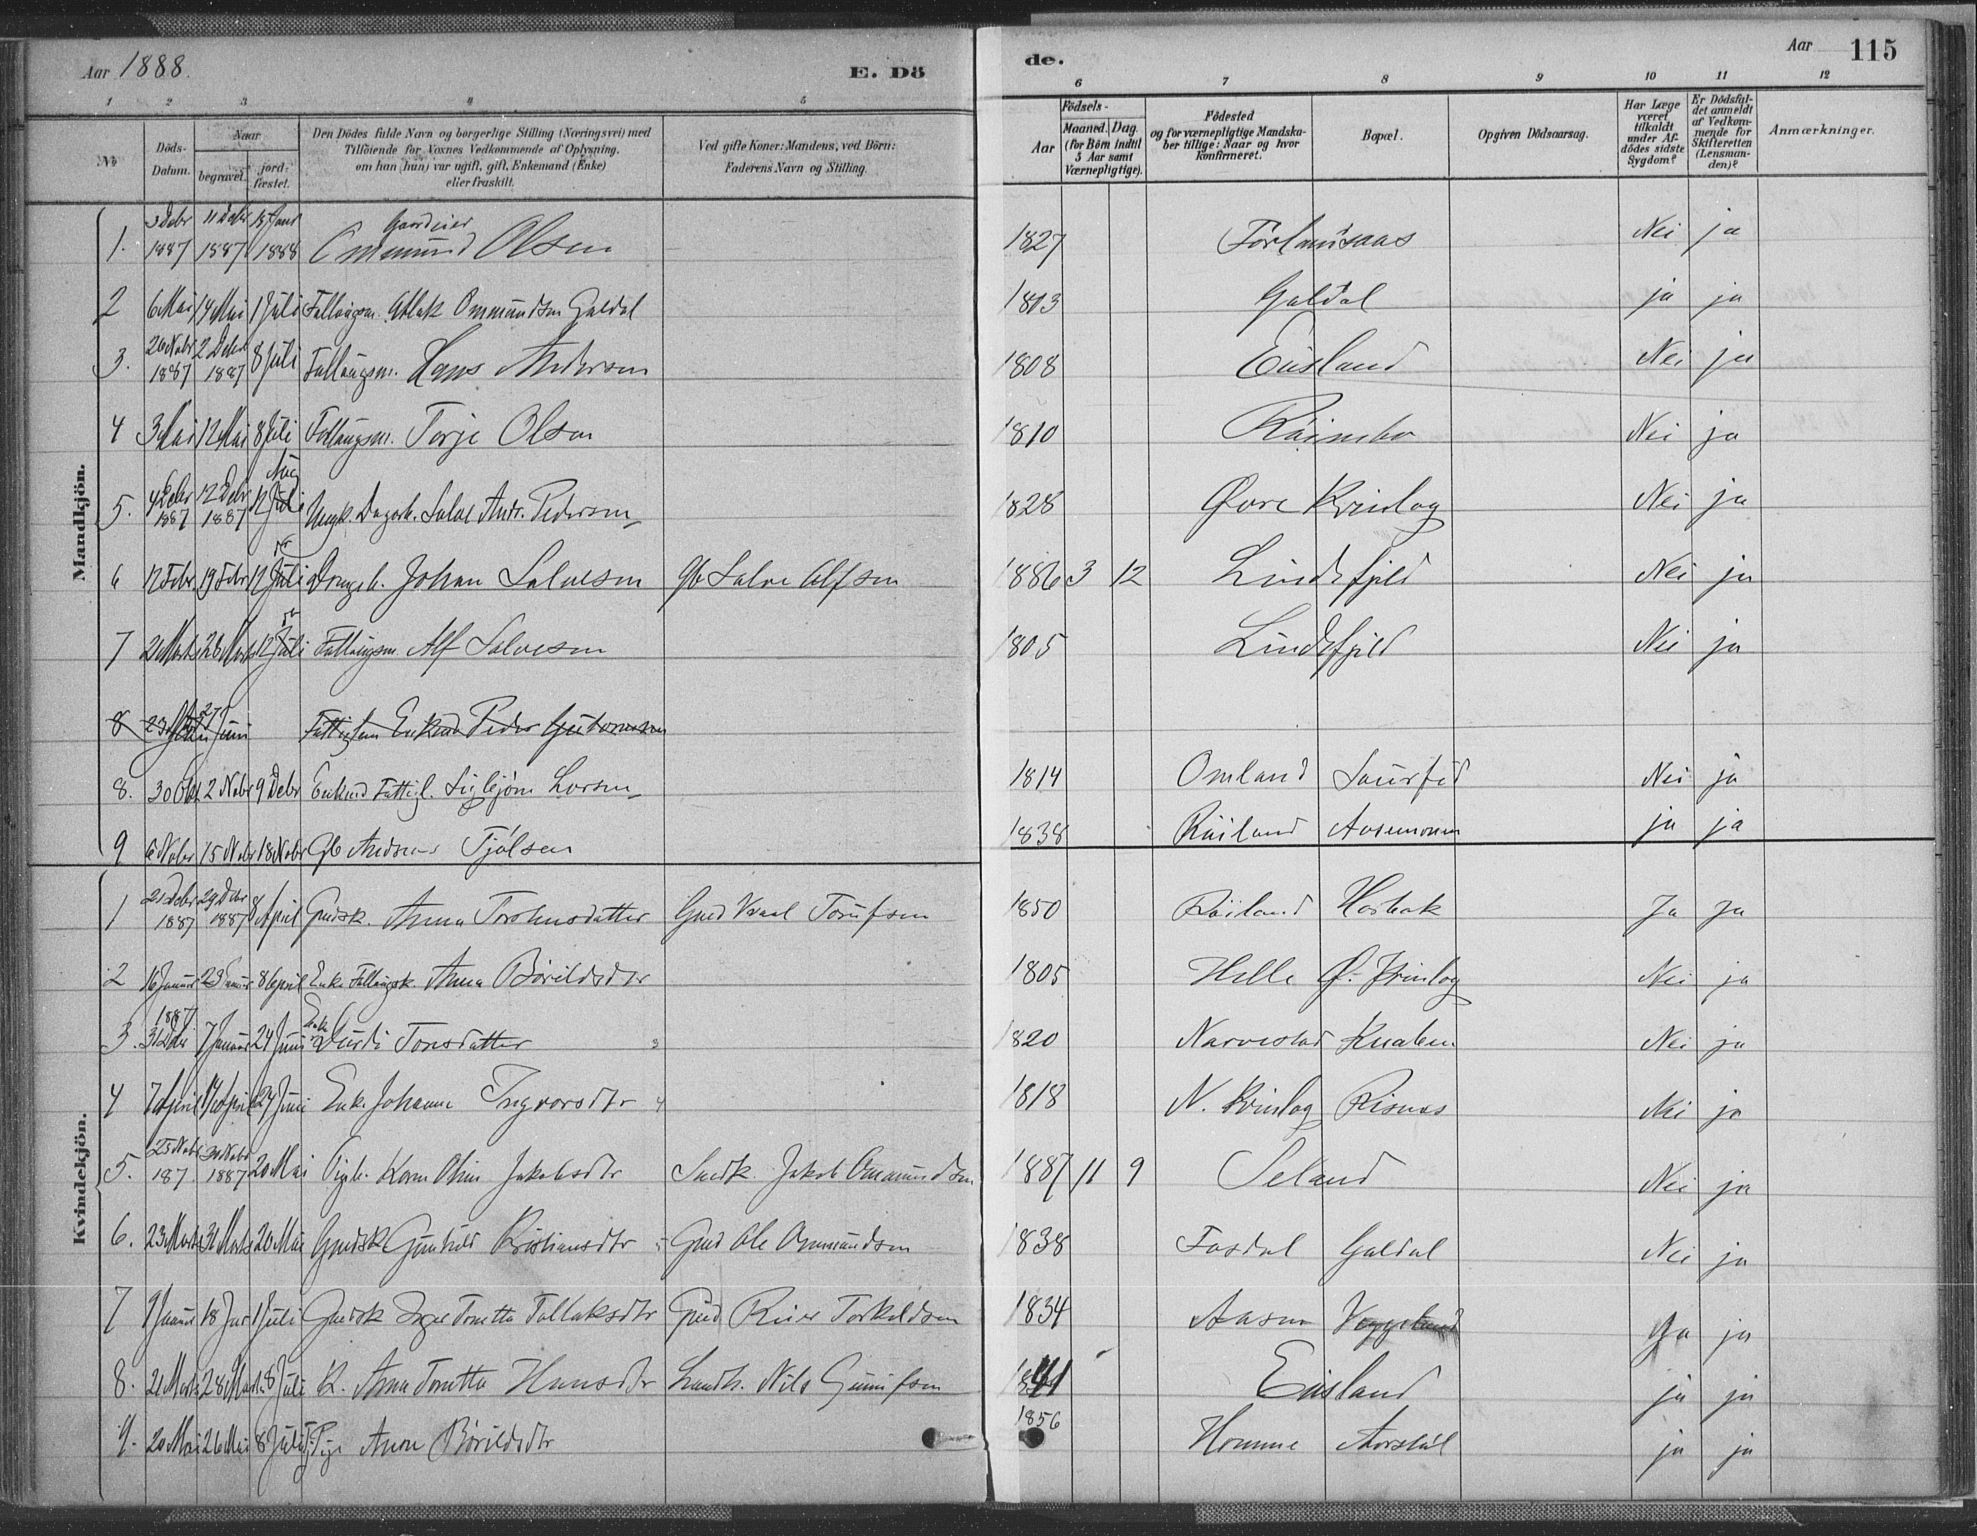 Aar 1888. E. Dö
de. Aar 115
1 2 3 4 5 6 7 8 9 10 11 12
No
Döds-Datum.
Naar
begravet. jord-fæstet.
Den Dödes fulde Navn og borgerlige Stilling (Næringsvei) med
Tilföiende for Voxnes Vedkommende af Oplysning,
om han (hun) var ugift, gift, Enkemand (Enke)
eller fraskilt.
Ved gifte Koner: Mandens, ved Börn:
Faderens Navn og Stilling.
Födsels-
Aar Maaned. Dag.
(for Börn indtil
5 Aar samt
Værnepligtige).
Födested
og for værnepligtige Mandska-
ber tillige: Naar og hvor
konfirmeret.
Bopæl.
Opgiven Dödsaarsag.
Har Læge
været
tilkaldt
under Af-
dödes sidste
Sygdom?
Er Dödsfal-
det anmeldt
af Vedkom-
mende for
Skifteretten
(Lensman-
den)?
Anmærkninger.
Mandkjön.
1. 3 Debr 1887 11 Debr 1887 15 Janr 1888 Gaardeier Ommund Olsen 1827 Nei ja
2 6 Mai 14 Mai 1 Juli Fallaugsm. Aslak Ommundsen Galdal 1813 Galdal ja ja
3. 26 Nobr 1887 2 Debr 1887 8 Juli Fallaugsm. Hans Andersen 1808 Eiesland Nei ja
4 3 Mai 12 Mai 8 Juli Fallaugsm. Torje Olsen 1810 Nei ja
5. 1887 12 Debr 1887 12 Juli Aug Ungk. Dagarb. Salve Andr. Pedersen 1828 Øvre Kvinlog Nei ja
6 12 Febr. 19 Febr 12 Juli Drengeb. Johan Salvesen Gb Salve Alfsen 1886 3 12 Lindefjeld Nei ja
7 21 Marts 26 Marts 12 Juli Fallaugsm. Alf Salvesen 1805 Lindefjeld Nei ja
8 23 27 Juni Fattiglem Enkem Peder
8. 30 Okt 2 Nobr 9 Debr Enkmd Fattigl. Sigbjørn Larsen 1814 Omland Nei ja
9 6 Nobr 15 Nobr 18 Nobr Gb Andreas Tjølsen 1838 Røiland ja ja
Kvindekjön.
1 21 Debr 1887 29 Debr 1887 8 April Gmdsk. Anna Gmd 1850 Røiland Ja Ja
2 16 Januar 23 Januar 8 April Enke Fallaugsk. Anna Børildsdtr 1805 Helle Ø. Kvinlog Nei ja
3. 1887 31 Debr 7 Januar 24 Juni Enke Gurdi Tonsdatter 3 1820 Narvestad Knaben Nei ja
4 7 April 14 April 24 Juni Enke Johanne Ingvarsdtr 4 1818 N. Kvinlog Risnes Nei ja
5. 25 Nobr 187 30 Nobr 1887 20 Mai Pigeb. Karen Jakobsdtr Snedk. Jakob Ommundsen 1887 11 9 Seland Nei ja
6. 23 Marts 31 Marts 20 Mai Gmdsk Gunhild Kristiansdtr 5 Gmd Ole Ommundsen 1838 Fosdal Galdal Nei ja
7 9 Januar 18 Jar 1 Juli Gmdsk Inger Tonetta Tallaksdtr Gmd Reier Torkeldsen 1834 Aasen Ja ja
8. 21 Marts 28 Marts 8 Juli K. Anna Tonetta Hansdtr Landh. Nils Gunufsen 41 Eiesland ja ja
9. 20 Mai 26 Mai 8 Juli Pige Anne Børildsdtr 1856 Homme ja ja